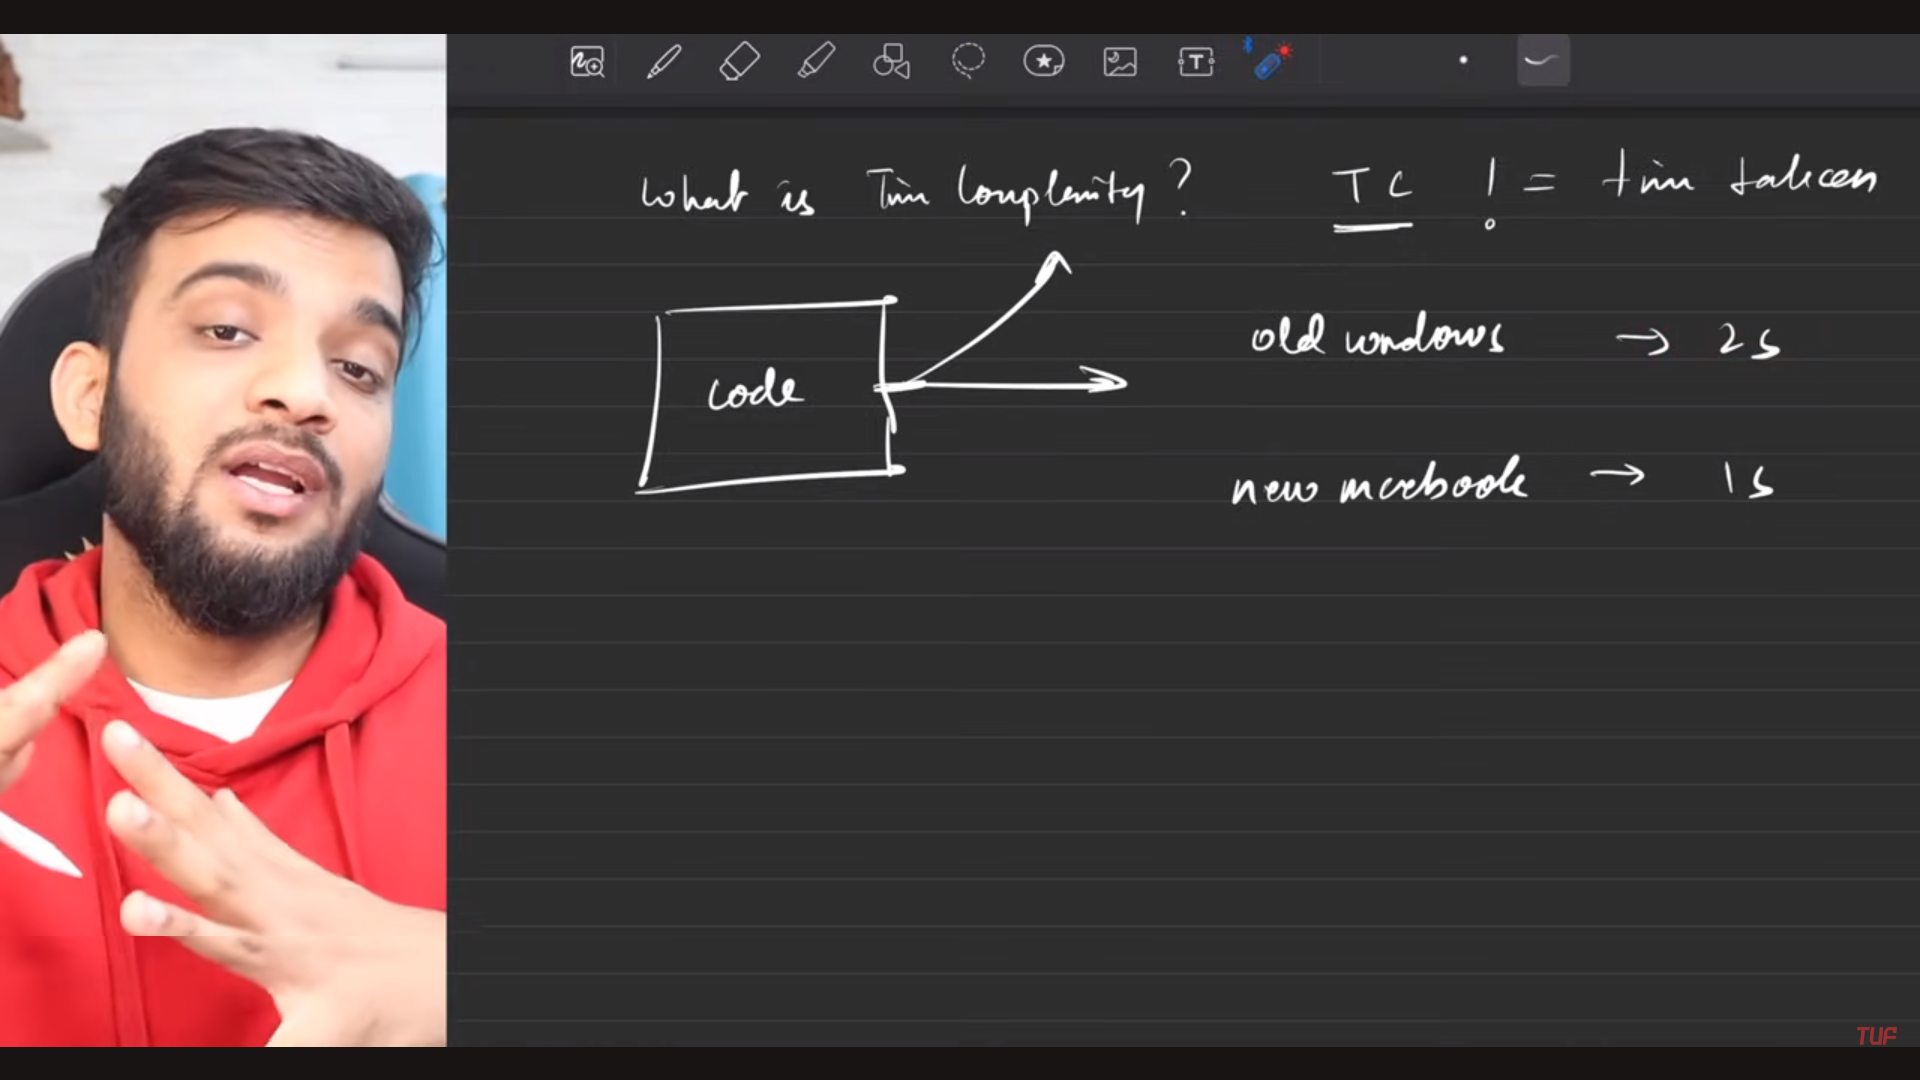 What is Time Complexity?
TC != time taken
code
old windows → 2s
new macbook → 1s
TUF